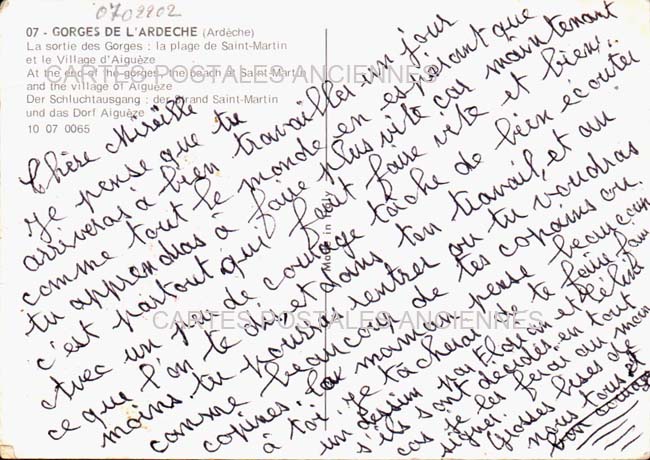 0702202
07 - GORGES DE L'ARDECHE (Ardèche)
La sortie des Gorges : la plage de Saint-Martin
et le Village d'Aiguèze
At the end of the gorges : the beach at Saint-Martin
and the village of Aiguèze
Der Schluchtausgang : der Strand Saint-Martin
und das Dorf Aiguèze
10 07 0065
CARTES POSTALES ANCIENNES
Made in
CARTES POSTALES ANCIENNES
Chère Mireille
Je pense que tu
arriveras à bien travailler un jour
comme tout le monde en espérant que
tu apprendras à faire plus vite car maintenant
c'est partout qu'il faut faire vite et bien.
Avec un peu de courage tâche de bien écouter
ce que l'on te dit dans ton travail, et au
moins tu pourras rentrer où tu voudras
comme beaucoup de tes copains ou
copines. La maman pense beaucoup
à toi. Je tacherai de te faire faire
un dessin par Florian et Céline
s'ils sont décidés en tout
cas je les ferai au moins
signer. Grosses bises de
nous tous et
bon courage